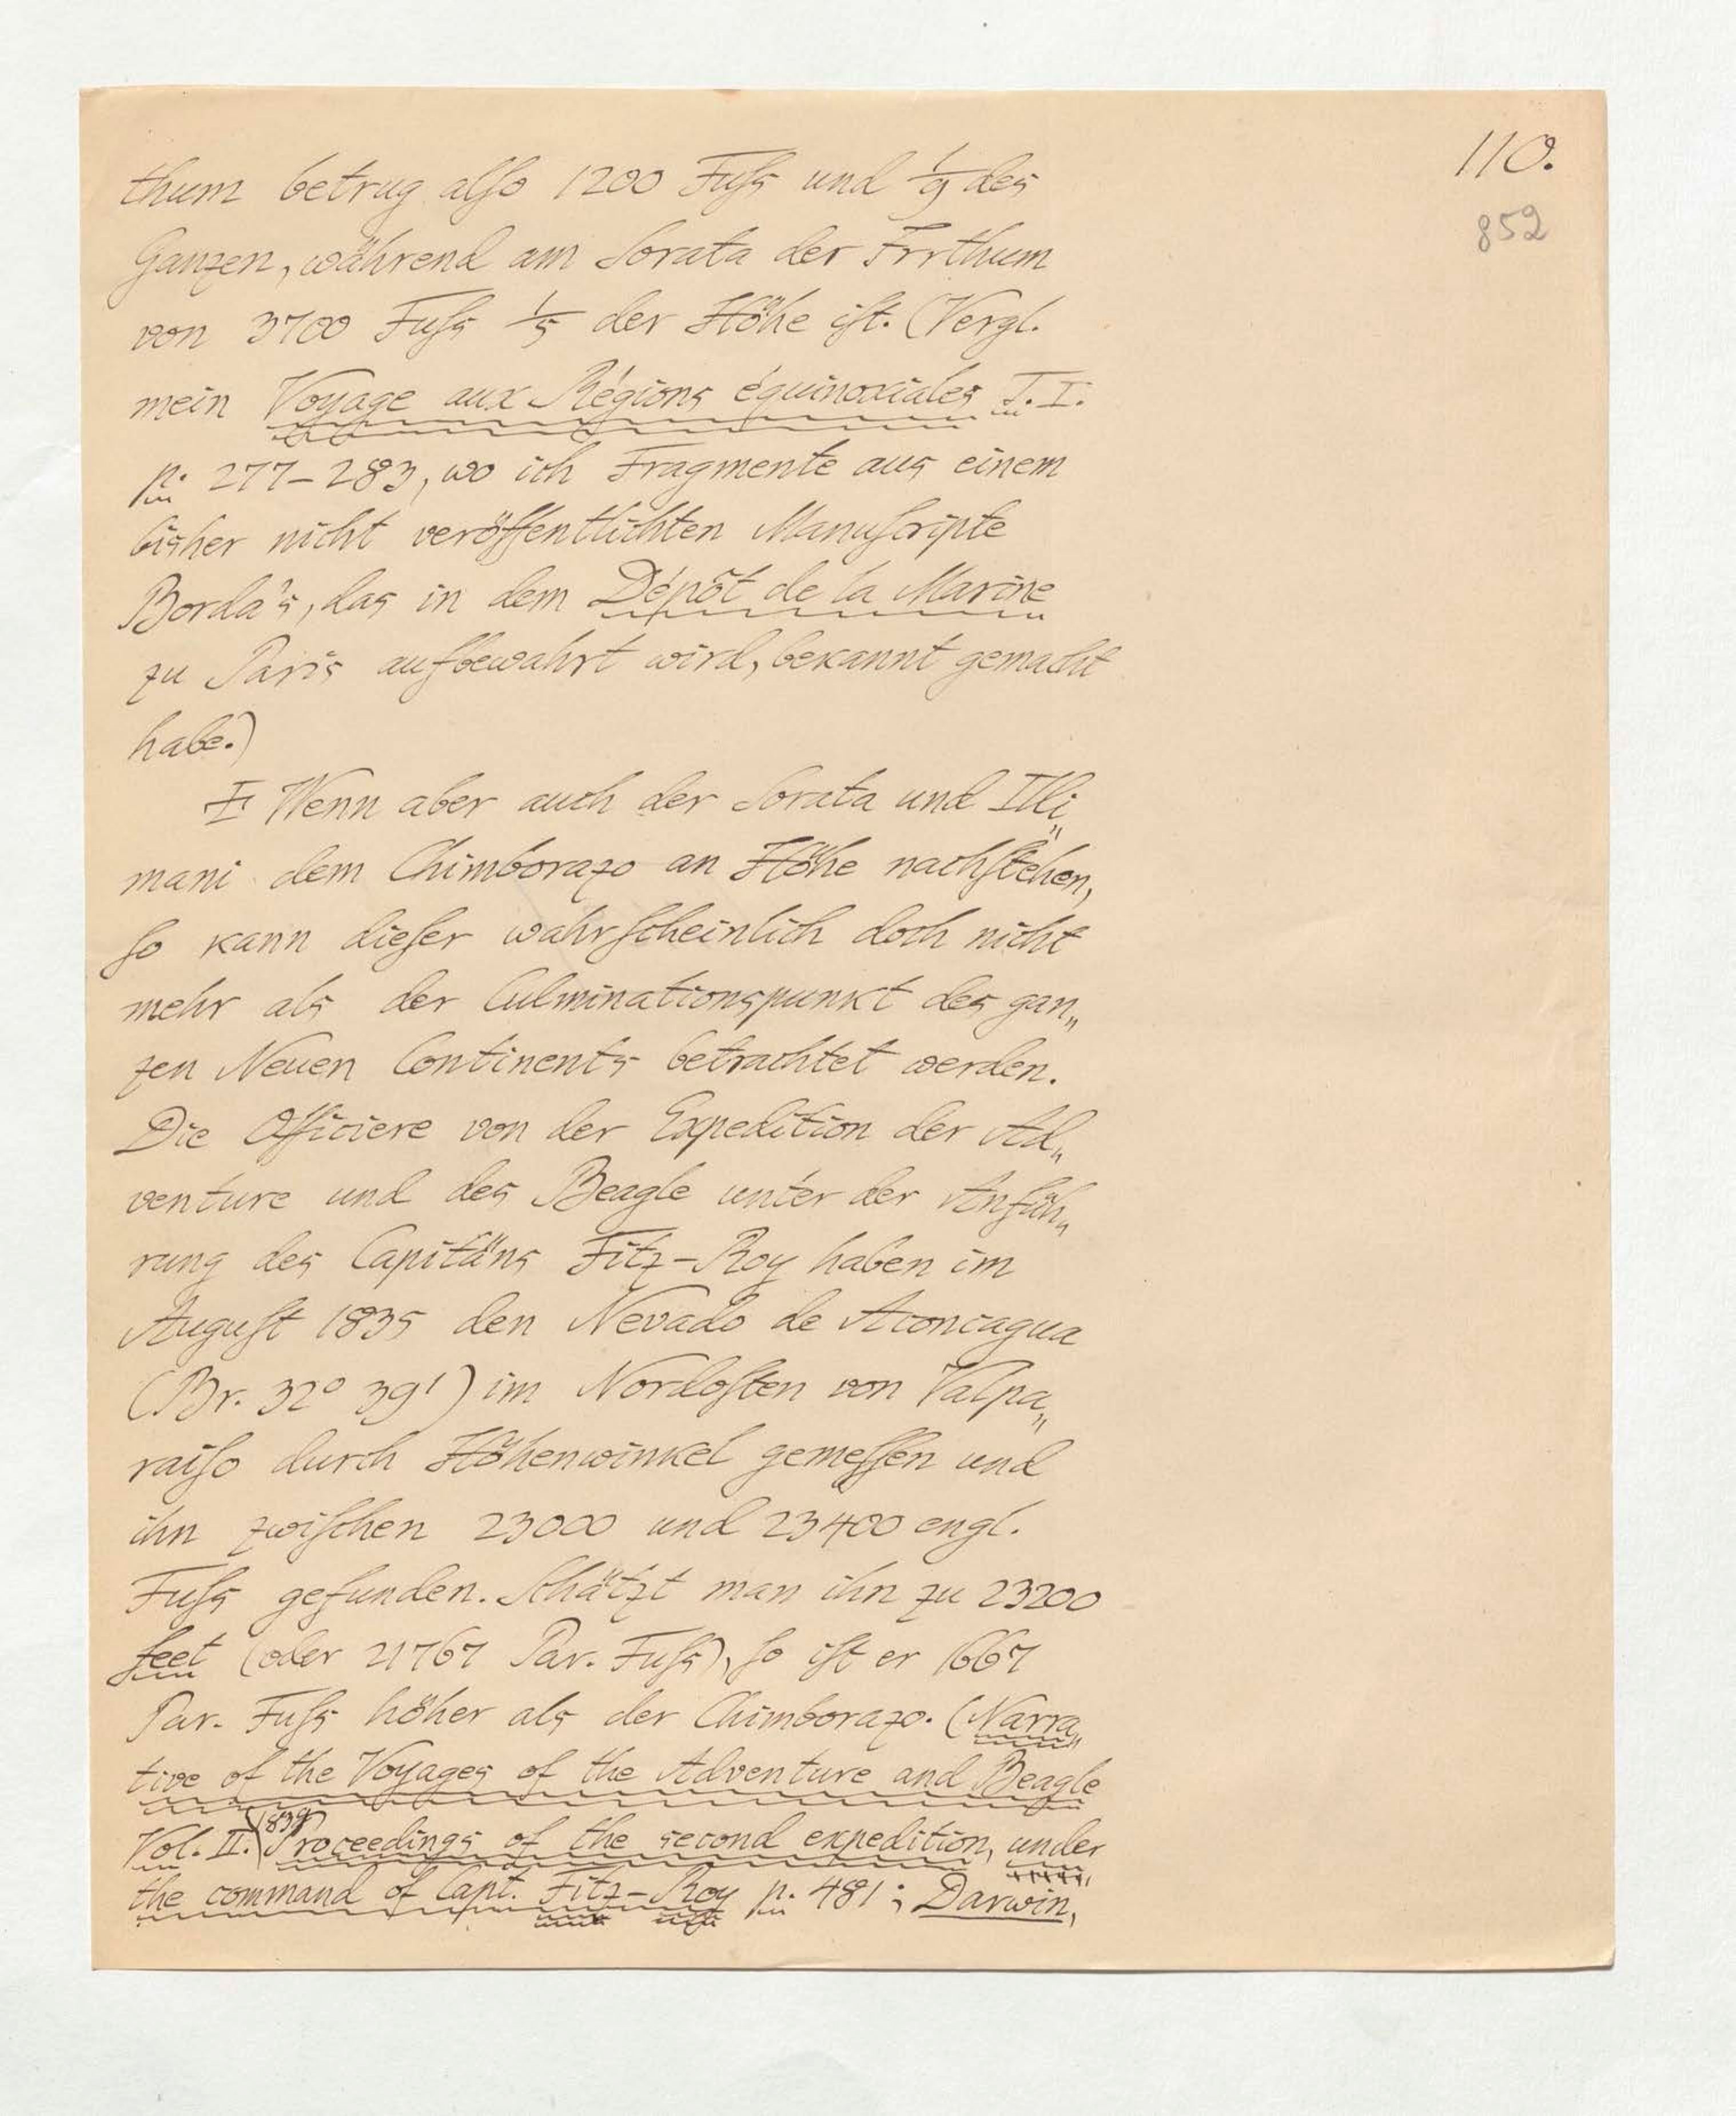 110.
852
thum betrug alſo 1200 Fuſs und 1/9 des
Ganzen, während am Sorata der Irrthum
von 3700 Fuſs 1/5 der Höhe iſt. (Vergl.
mein Voyage aux Régions équinoxiales T. I.
p. 277–283, wo ich Fragmente aus einem
bisher nicht veröffentlichten Manuſcripte
Borda's, das in dem Dépôt de la Marine
zu Paris aufbewahrt wird, bekannt gemacht
habe.)
Wenn aber auch der Sorata und Illi„
mani dem Chimborazo an Höhe nachſtehen,
ſo kann dieſer wahrſcheinlich doch nicht
mehr als der Culminationspunkt des gan„
zen Neuen Continents betrachtet werden.
Die Officiere von der Expedition der Ad„
venture und des Beagle unter der Anfüh„
rung des Capitäns Fitz-Roy haben im
Auguſt 1835 den Nevado de Aconcagua
(Br. 32° 39') im Nordoſten von Valpa„
raiſo durch Höhenwinkel gemeſſen und
ihn zwiſchen 23000 und 23400 engl.
Fuſs gefunden. Schätzt man ihn zu 23200
feet (oder 21767 Par. Fuſs), ſo iſt er 1667
Par. Fuſs höher als der Chimborazo. (Narra„
tive of the Voyages of the Adventure and Beagle
Vol. II. 1839 Proceedings of the second expedition, under
the command of Capt. Fitz-Roy p. 481; Darwin,